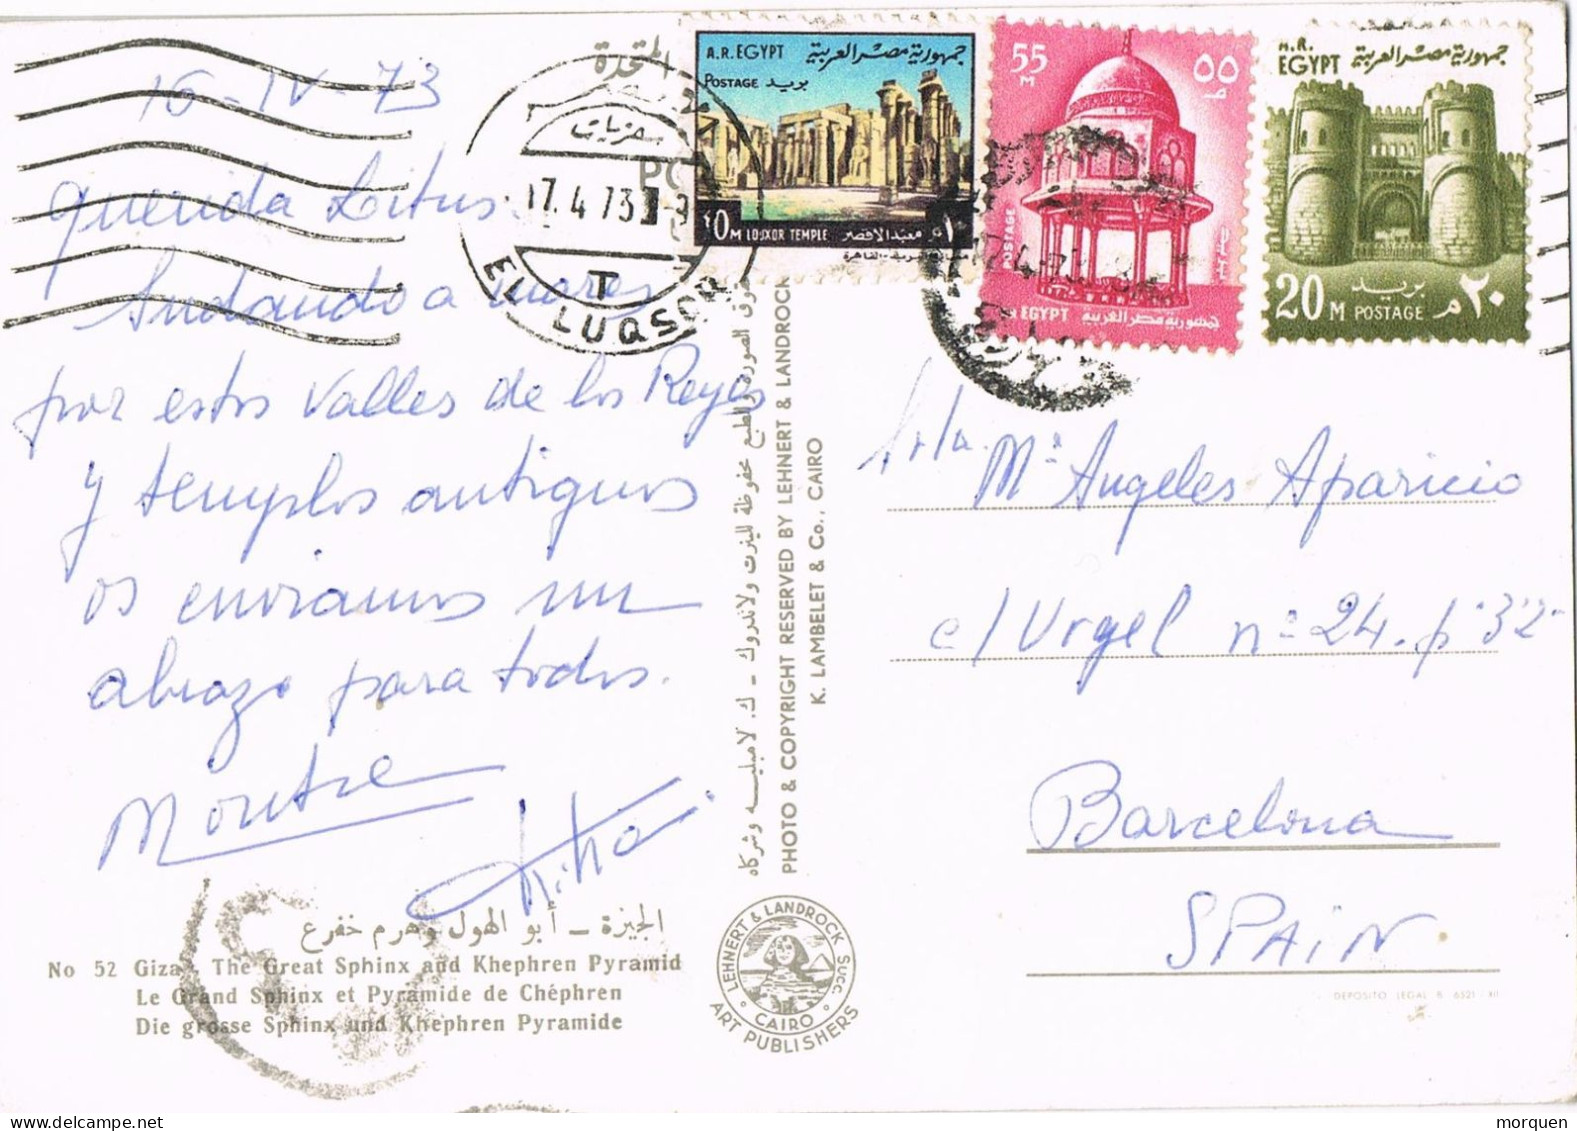 16-IV-73
querida Litus.
Andando a mares
por estos Valles de los Reyes
y templos antiguos
os enviamos un
abrazo para todos.
Montse
A.R. EGYPT جمهورية مصر العربية
POSTAGE بريد
10M LOUXOR TEMPLE معبد الأقصر ١٠م
55 M ٥٥
POSTAGE
EGYPT جمهورية مصر العربية
A.R. EGYPT جمهورية مصر العربية
20 M POSTAGE بريد ٢٠ م
17.4.73
T
EL LUQSOR
Srta.
Mª Angeles Aparicio
c/ Urgel nº 24. p. 3º 2ª
Barcelona
SPAIN
DEPOSITO LEGAL B. 6521 - XII
حقوق الصورة والطبع محفوظة للينرت ولاندروك - ك. لامبليه وشركاه
PHOTO & COPYRIGHT RESERVED BY LEHNERT & LANDROCK
K. LAMBELET & Co., CAIRO
الجيزة - أبو الهول وهرم خفرع
No 52 Giza - The Great Sphinx and Khephren Pyramid
Le Grand Sphinx et Pyramide de Chéphren
Die grosse Sphinx und Khephren Pyramide
LEHNERT & LANDROCK SUCC.
CAIRO
ART PUBLISHERS
morquen